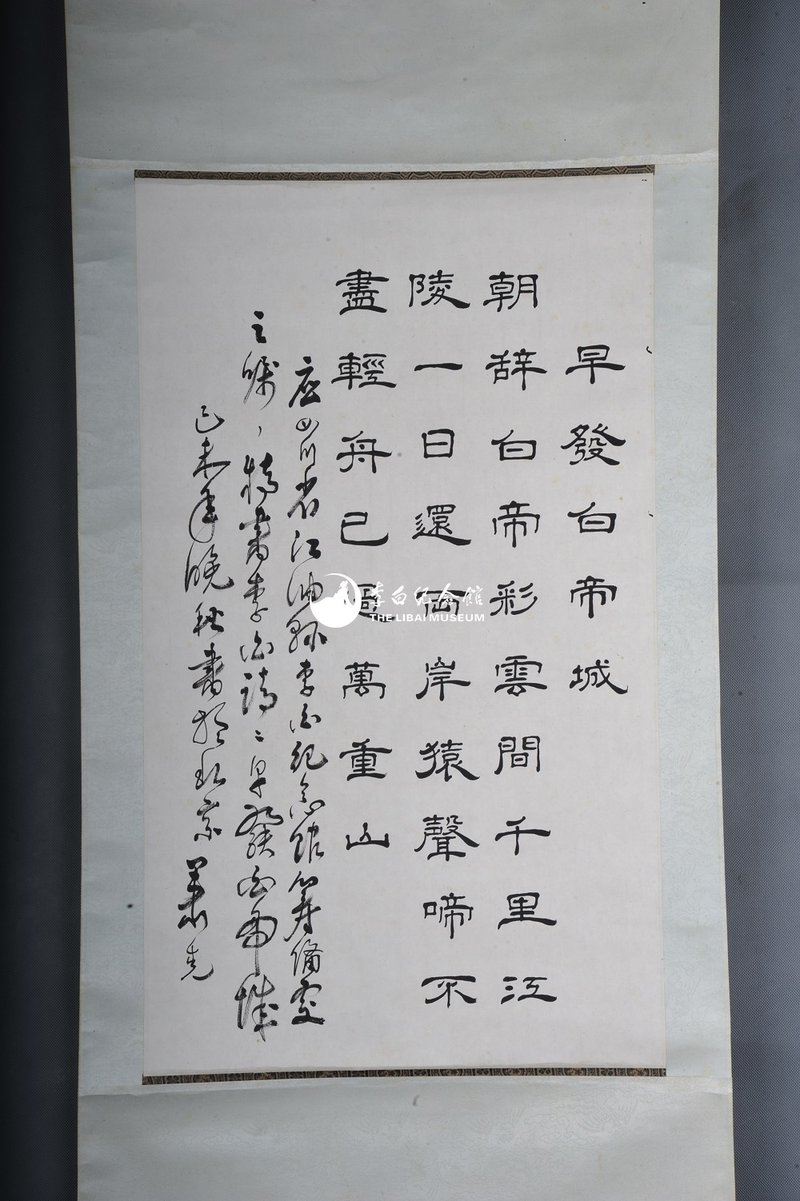 早發白帝城
朝辞白帝彩雲間千里江
陵一日還兩岸猿聲啼不
盡輕舟已過萬重山
应四川省江油縣李白纪念馆筹備处
之嘱、特書李白詩、早發白帝城
己未年晚秋書於北京
李白纪念館
THE LIBAI MUSEUM